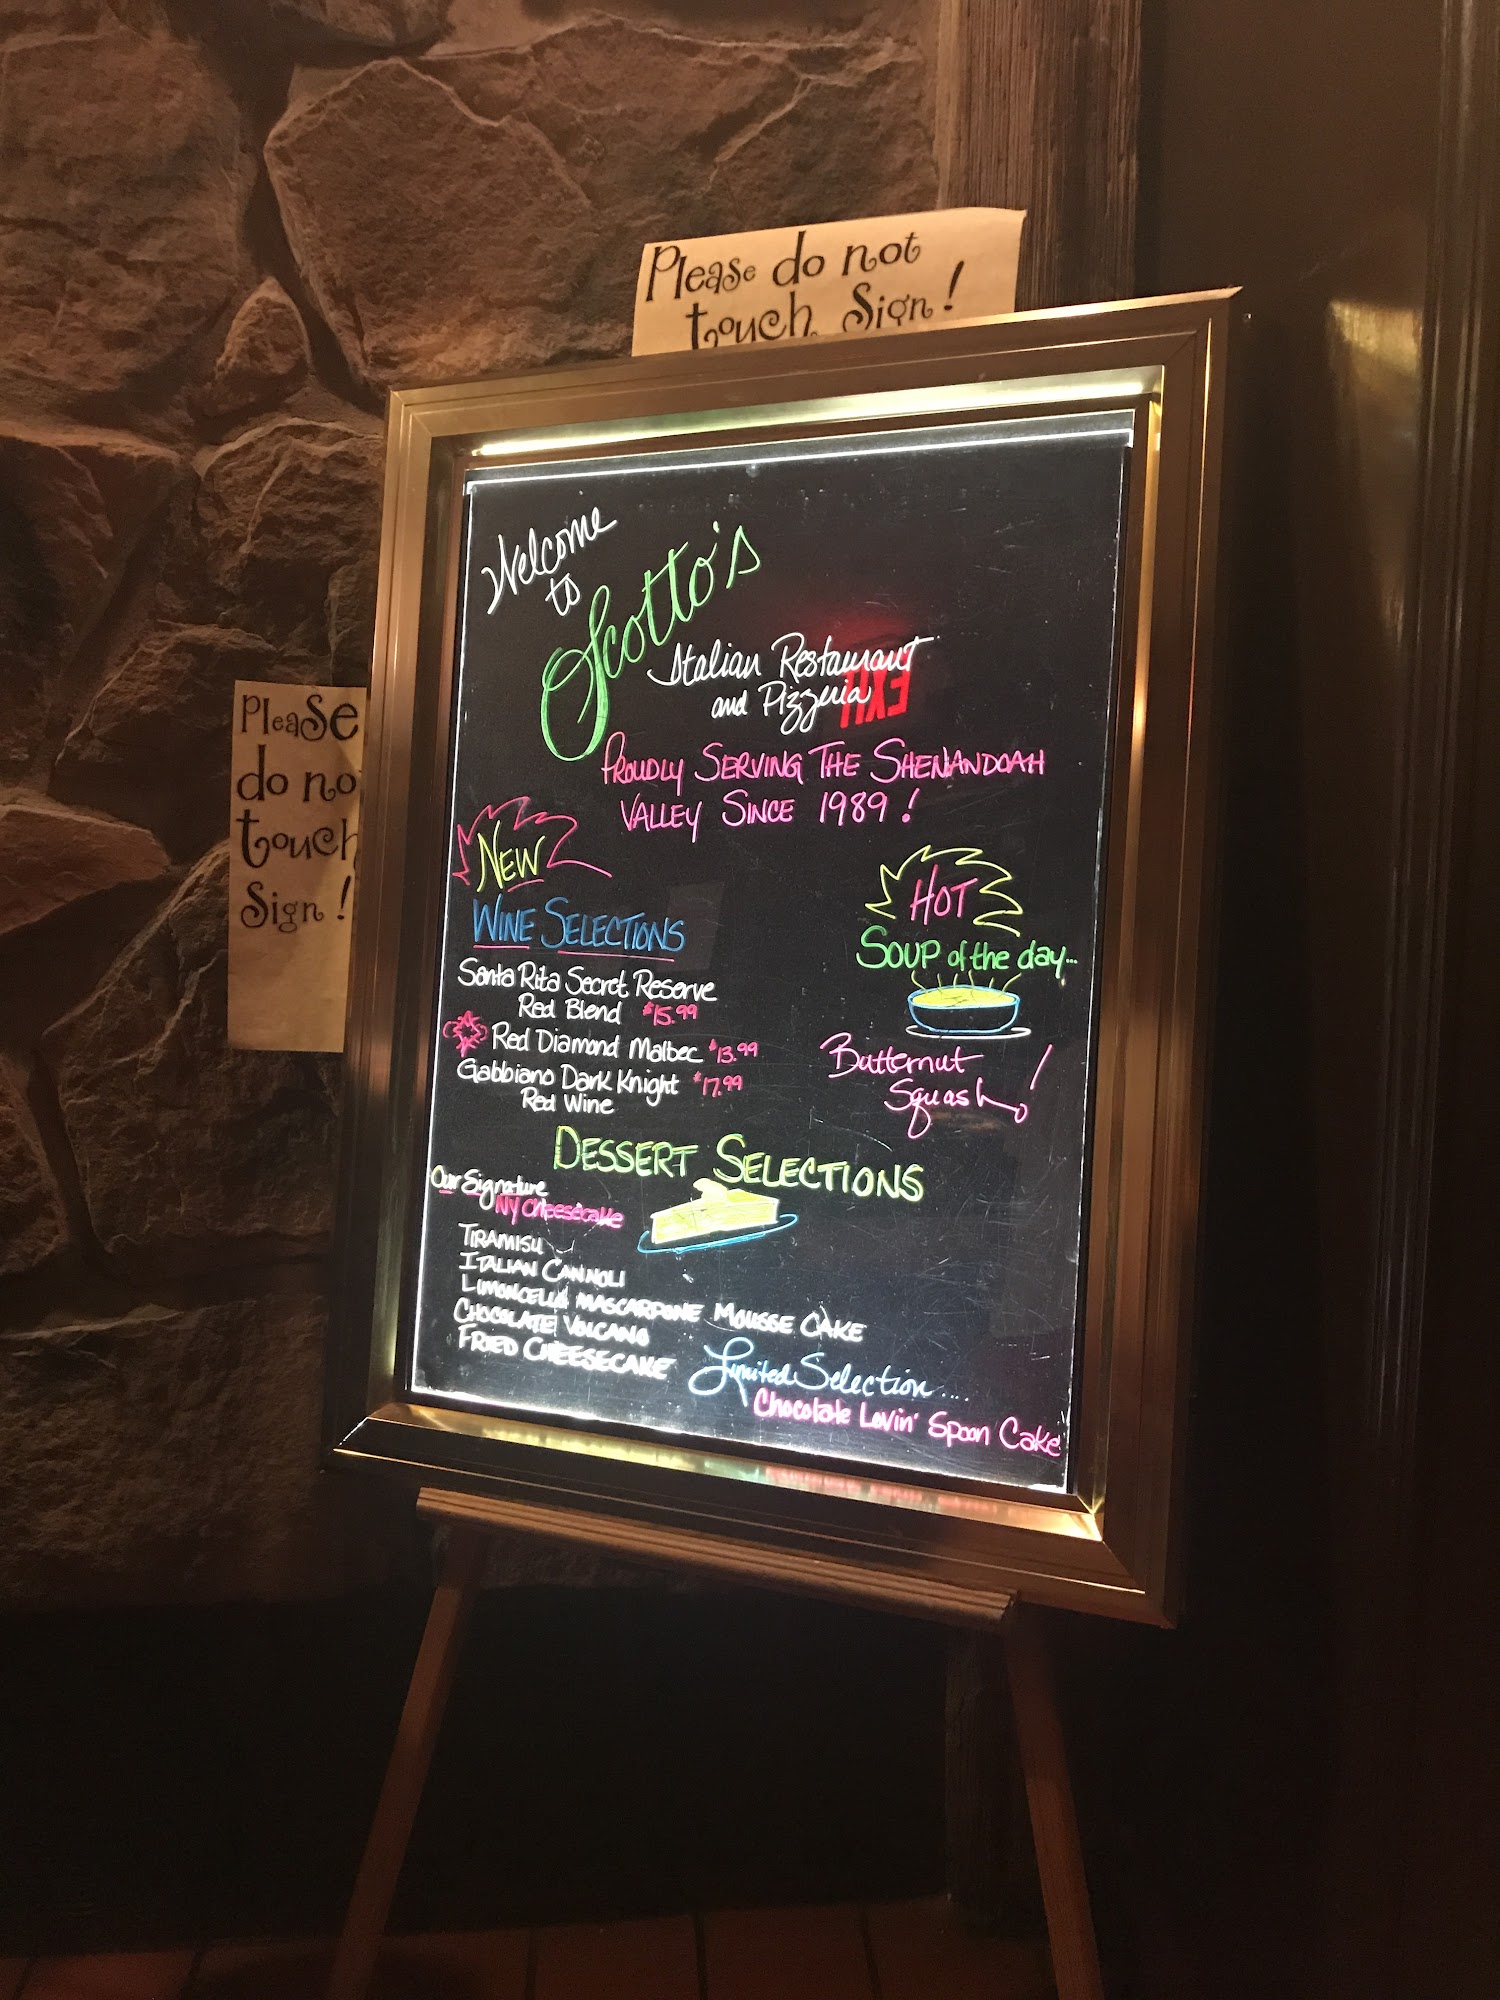 Please do not
touch Sign!
Please
do no
touch
Sign!
Welcome
to
Scotto's
Italian Restaurant
and Pizzeria
EXIT
Proudly Serving The Shenandoah
Valley Since 1989!
New
Wine Selections
Santa Rita Secret Reserve
Red Blend $15.99
Red Diamond Malbec $13.99
Gabbiano Dark Knight $17.99
Red Wine
HOT
Soup of the day...
Butternut
Squash!
Dessert Selections
Our Signature
NY Cheesecake
Tiramisu
Italian Cannoli
Limoncella Mascarpone Mousse Cake
Chocolate Volcano
Fried Cheesecake
Limited Selection....
Chocolate Lovin' Spoon Cake